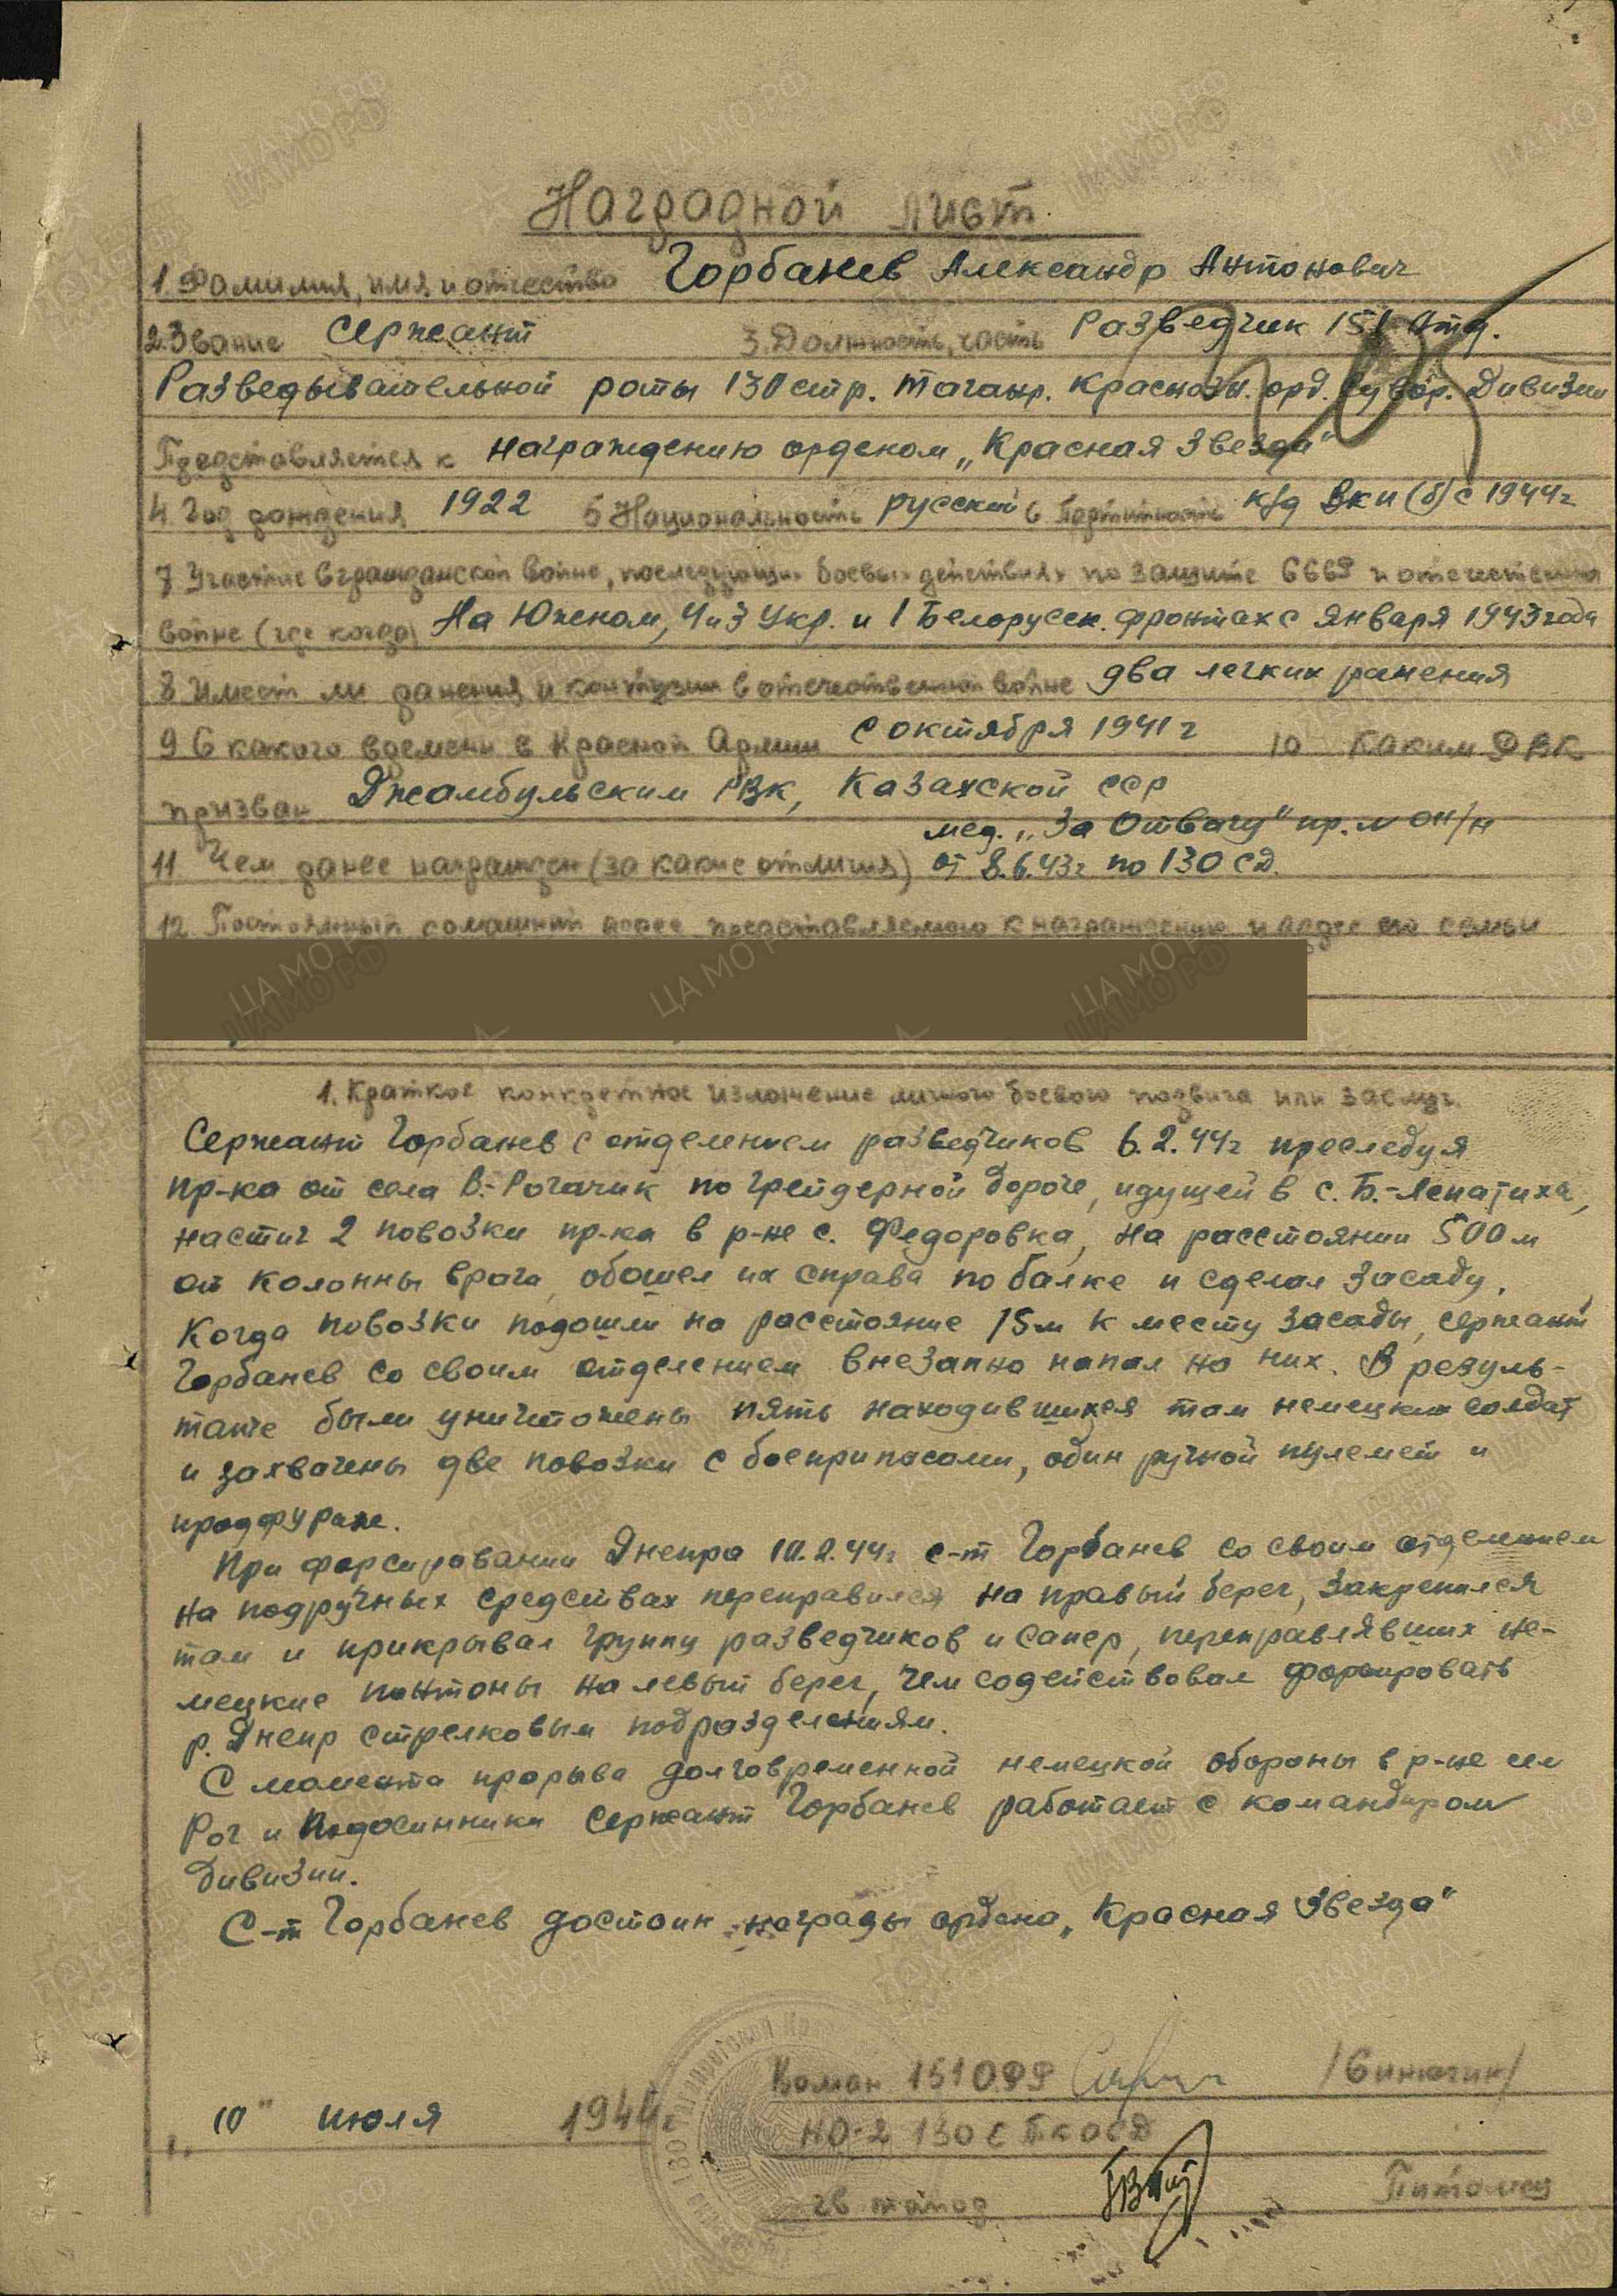 Наградной лист.
1. Фамилия, имя и отчество Горбанев Александр Антонович
2. Звание Сержант 3. Должность, часть Разведчик 151 отд.
Разведывательной роты 130 стр. Таганр. Краснозн. орд. Сувор. Дивизии
Представляется к награждению орденом „Красная Звезда"
4 Год рождения 1922 5 Национальность русский 6 Партийность к/д ВКП(б) с 1944г
7 Участие в гражданской войне, последующих боевых действиях по защите СССР и отечественной
войне (где когда) На Южном, 4 и 3 Укр. и 1 Белорусск. фронтах с января 1943 года
8 Имеет ли ранения и контузии в отечественной войне два легких ранения
9 С какого времени в Красной Армии с октября 1941 г 10 Каким РВК
призван Джамбульским РВК, Казахской ССР
мед. „За Отвагу" пр. № 011/н
11 Чем ранее награжден (за какие отличия) от 8.6.43г по 130 СД.
12 Постоянный домашний адрес представляемого к награждению и адрес его семьи
1. Краткое конкретное изложение личного боевого подвига или заслуг.
Сержант Горбанев с отделением разведчиков 6.2.44г преследуя
пр-ка от села В.-Рогачик по грейдерной дороге, идущей в с. Б.-Лепатиха,
настиг 2 повозки пр-ка в р-не с. Федоровка, на расстоянии 500 м
от колонны врага, обошел их справа по балке и сделал засаду.
Когда повозки подошли на расстояние 15м к месту засады, сержант
Горбанев со своим отделением внезапно напал на них. В резуль-
тате были уничтожены пять находившихся там немецких солдат
и захвачены две повозки с боеприпасами, один ручной пулемет и
продфураж.
При форсировании Днепра 10.2.44г с-т Горбанев со своим отделением
на подручных средствах переправился на правый берег, закрепился
там и прикрывал группу разведчиков и сапер, переправлявших не-
мецкие понтоны на левый берег, чем содействовал форсировать
р. Днепр стрелковым подразделениям.
С момента прорыва долговременной немецкой обороны в р-не
Рог и Подосинники Сержант Горбанев работает с командиром
дивизии.
С-т Горбанев достоин награды ордена „Красная Звезда"
Коман 151 ОРР /Синюгин/
10" июля 1944г
НО-2 130 СТКОСД
гв майор Питомец
ЦАМО РФ
ПАМЯТЬ НАРОДА